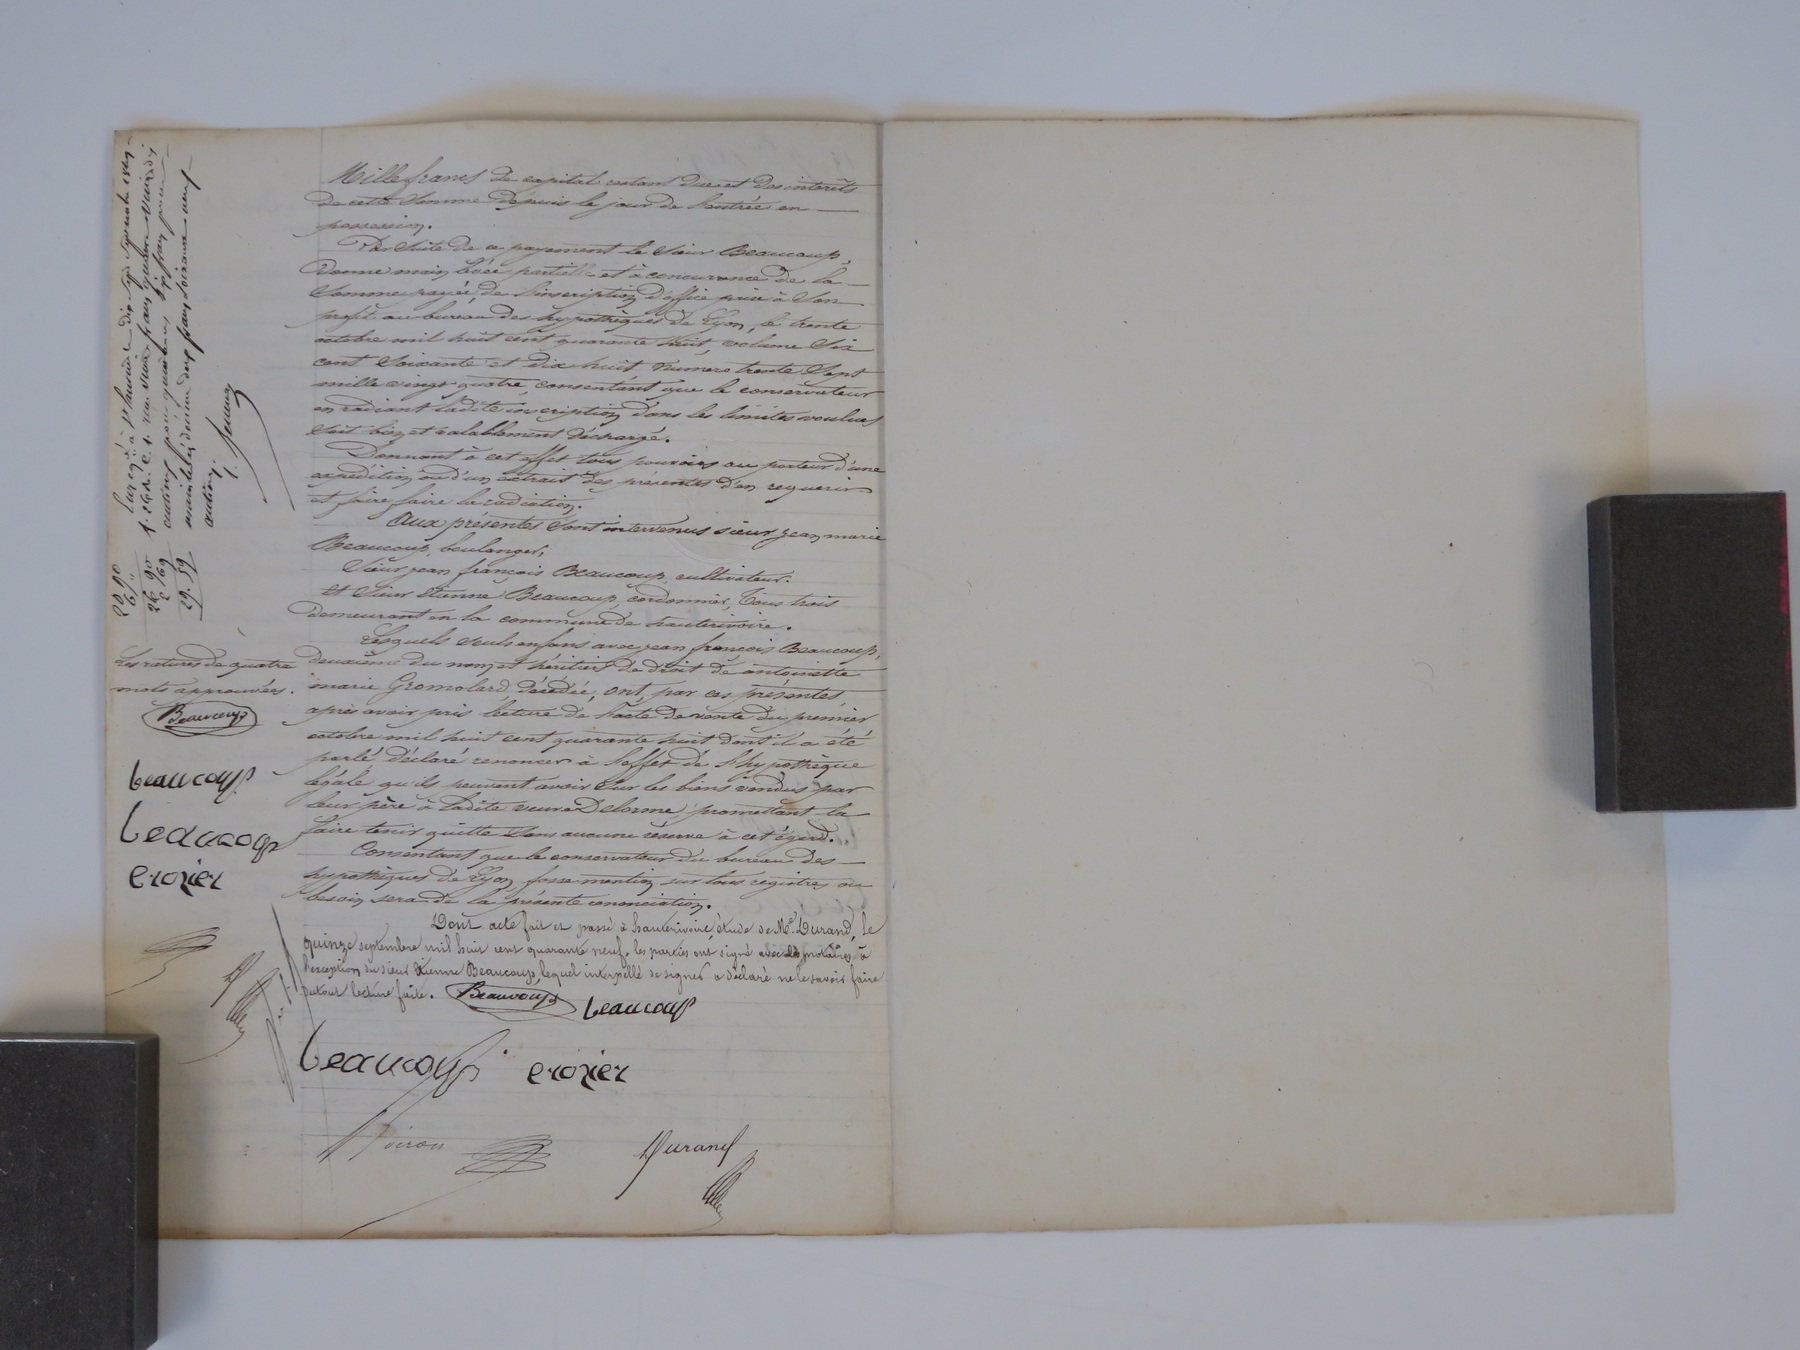 Mille francs de capital restant dus et des intérêts
de cette somme depuis le jour de l'entrée en
possession.
Par suite de ce payement le sieur Beaucoup,
donne main levée partielle et à concurrence de la
somme payée, de l'inscription d'office prise à son
profit au bureau des hypothèques de Lyon, le trente
octobre mil huit cent quarante huit, volume six
cent soixante et dix huit numéro trente sept
mille vingt quatre, consentant que le conservateur
en radiant ladite inscription dans les limites voulues
soit bien et valablement déchargé.
Donnant à cet effet tous pouvoirs au porteur d'une
expédition ou d'un extrait des présentes d'en requérir
et faire faire la radiation.
Aux présentes sont intervenus sieur jean marie
Beaucoup, boulanger,
Sieur jean françois Beaucoup, cultivateur.
Et sieur étienne Beaucoup, cordonnier, Tous trois
demeurant en la commune de hauterivoire.
Lesquels seuls enfans avec jean françois Beaucoup,
deuxième du nom, et héritiers de droit de antoinette
marie Gromolard décédée, ont, par ces présentes,
après avoir pris lecture de l'acte de vente du premier
octobre mil huit cent quarante huit dont il a été
parlé, déclaré renoncer à l'effet de l'hypothèque
légale qu'ils peuvent avoir sur les biens vendus par
leur père à ladite veuve Delorme, promettant la
faire tenir quitte sans aucune réserve à cet égard.
Consentant que le conservateur du bureau des
hypothèques de Lyon, fasse mention sur tous registres où
besoin sera de la présente renonciation.
Dont acte fait et passé à hauterivoire, étude de Me. Durand, le
quinze septembre mil huit cent quarante neuf. les parties ont signé avec les notaires à
l'exception du sieur étienne Beaucoup, lequel interpellé de signer a déclaré ne le savoir faire
autout lecture faite. Beaucoup beaucoup
beaucoup crozier
Durand
Les ratures de quatre
mots approuvées.
Beaucoup
beaucoup
beaucoup
crozier
26 90
2 69
29. 59